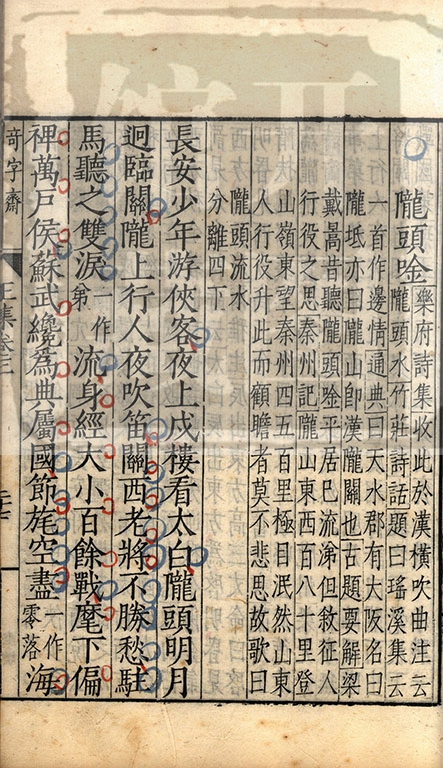 隴頭唫樂府詩集收此於漢橫吹曲注云
隴頭水竹莊詩話題曰瑤溪集云
六首作邊情通典曰天水郡有大阪名曰
隴坻亦曰隴山即漢隴關也古題要解梁
戴暠昔聽隴頭唫平居巳流涕但敘征人
行役之思秦州記隴山東西百八十里登
山嶺東望秦州四五百里極目泯然山東
人行役升此而顧瞻者莫不悲思故歌曰
隴頭流水
分離四下
長安少年游俠客夜上戍樓看太白隴頭明月
迥臨關隴上行人夜吹笛關西老將不勝愁駐
馬聽之雙淚一作第流身經大小百餘戰麾下偏
裨萬戶侯蘇武纔為典屬國節旄空盡一作零落海
奇字齋
王集卷三